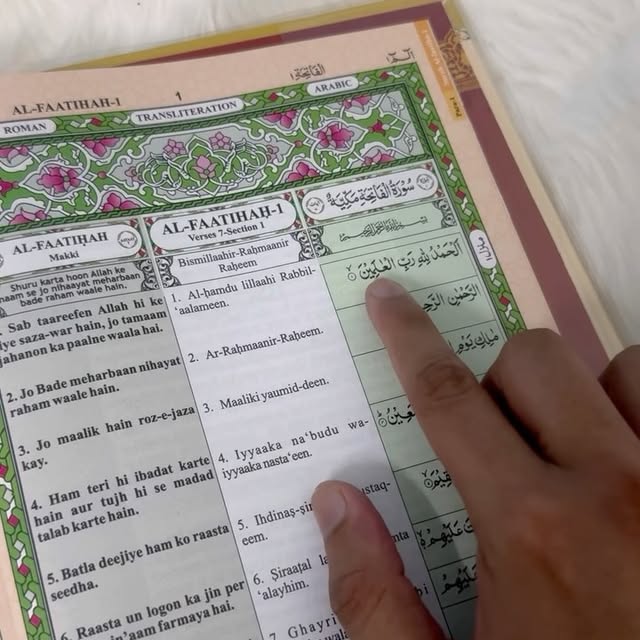 AL-FAATIHAH-1
1
الفَاتِحَة
الٓمّٓ
ROMAN
TRANSLITERATION
ARABIC
AL-FAATIḤAH
Makki
Shuru karta hoon Allah ke
naam se jo nihaayat meharbaan
bade raham waale hain.
Sab taareefen Allah hi ke
liye saza-war hain, jo tamaam
jahanon ka paalne waala hai.
2. Jo Bade meharbaan nihayat
raham waale hain.
3. Jo maalik hain roz-e-jaza
kay.
4. Ham teri hi ibadat karte
hain aur tujh hi se madad
talab karte hain.
5. Batla deejiye ham ko raasta
seedha.
6. Raasta un logon ka jin per
in'aam farmaya hai.
AL-FAATIHAḤ-1
Verses 7-Section 1
Bismillaahir-Raḥmaanir
Raḥeem
1. Al-ḥamdu lillaahi Rabbil-
‘aalameen.
2. Ar-Raḥmaanir-Raḥeem.
3. Maaliki yaumid-deen.
4. Iyyaaka na‘budu wa-
iyyaaka nasta‘een.
5. Ihdinaṣ-ṣir
ustaq-
eem.
6. Ṣiraaṭal
‘alayhim.
7. Ghayri
سُورَةُ الْفَاتِحَةِ مَكِّيَّةٌ
اَلْحَمْدُ لِلّٰهِ رَبِّ الْعٰلَمِيْنَ
الرَّحْمٰنِ
مٰلِكِ يَوْمِ